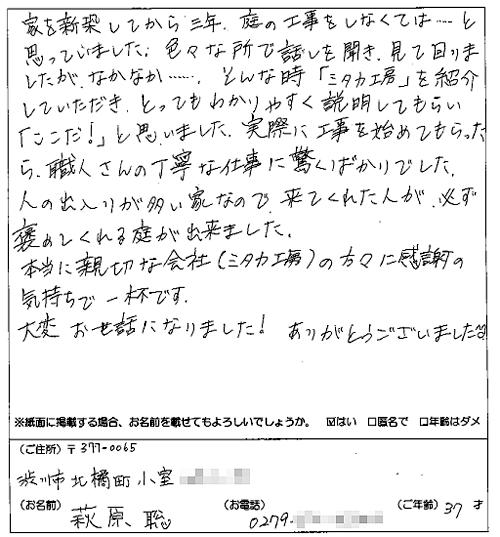 家を新築してから三年、庭の工事をしなくては……と
思っていました。色々な所で話しを聞き、見て回りま
したが、なかなか……。そんな時「ミタカ工房」を紹介
していただき、とってもわかりやすく説明してもらい
「ここだ!」と思いました。実際に工事を始めてもらった
ら、職人さんの丁寧な仕事に驚くばかりでした。
人の出入りが多い家なので、来てくれた人が、必ず
褒めてくれる庭が出来ました。
本当に親切な会社(ミタカ工房)の方々に感謝の
気持ちで一杯です。
大変お世話になりました! ありがとうございました
※紙面に掲載する場合、お名前を載せてもよろしいでしょうか。 ☑はい □匿名で □年齢はダメ
(ご住所)〒377-0065
渋川市北橘町小室
(お名前) 萩原、聡 (お電話) 0279- (ご年齢) 37 才